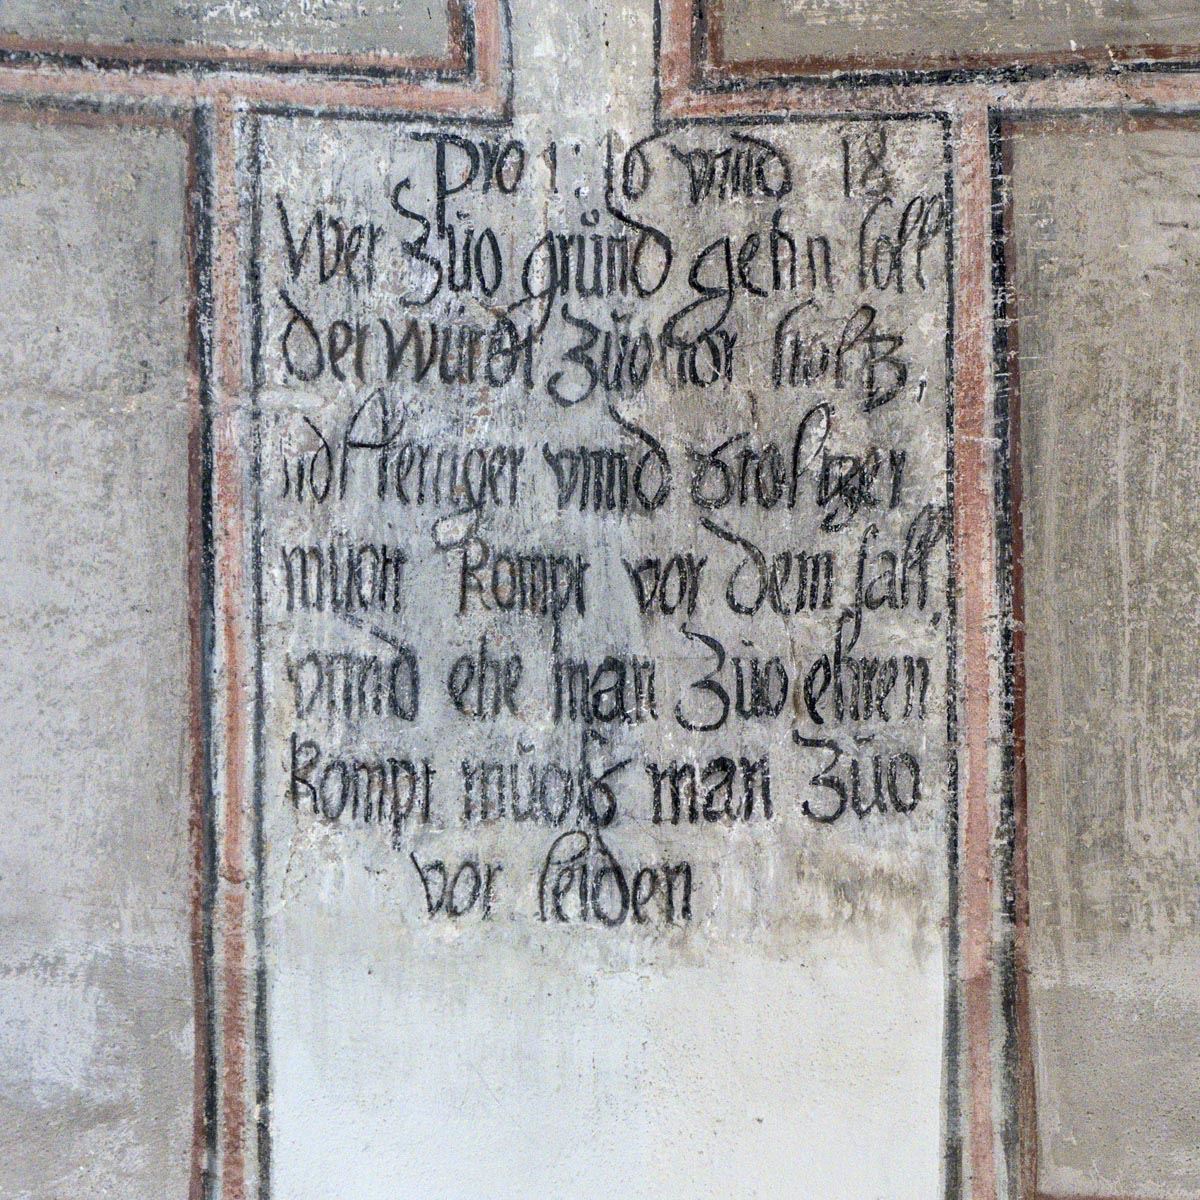 Pro 1: 16 vnnd 18
Wer zůo gründ gehn soll
der würdt zůo vor stoltz,
vnnd stoltzer
můott kompt vor dem fall,
vnnd ehe man zůo ehren
kompt můoß man zůo
vor leiden